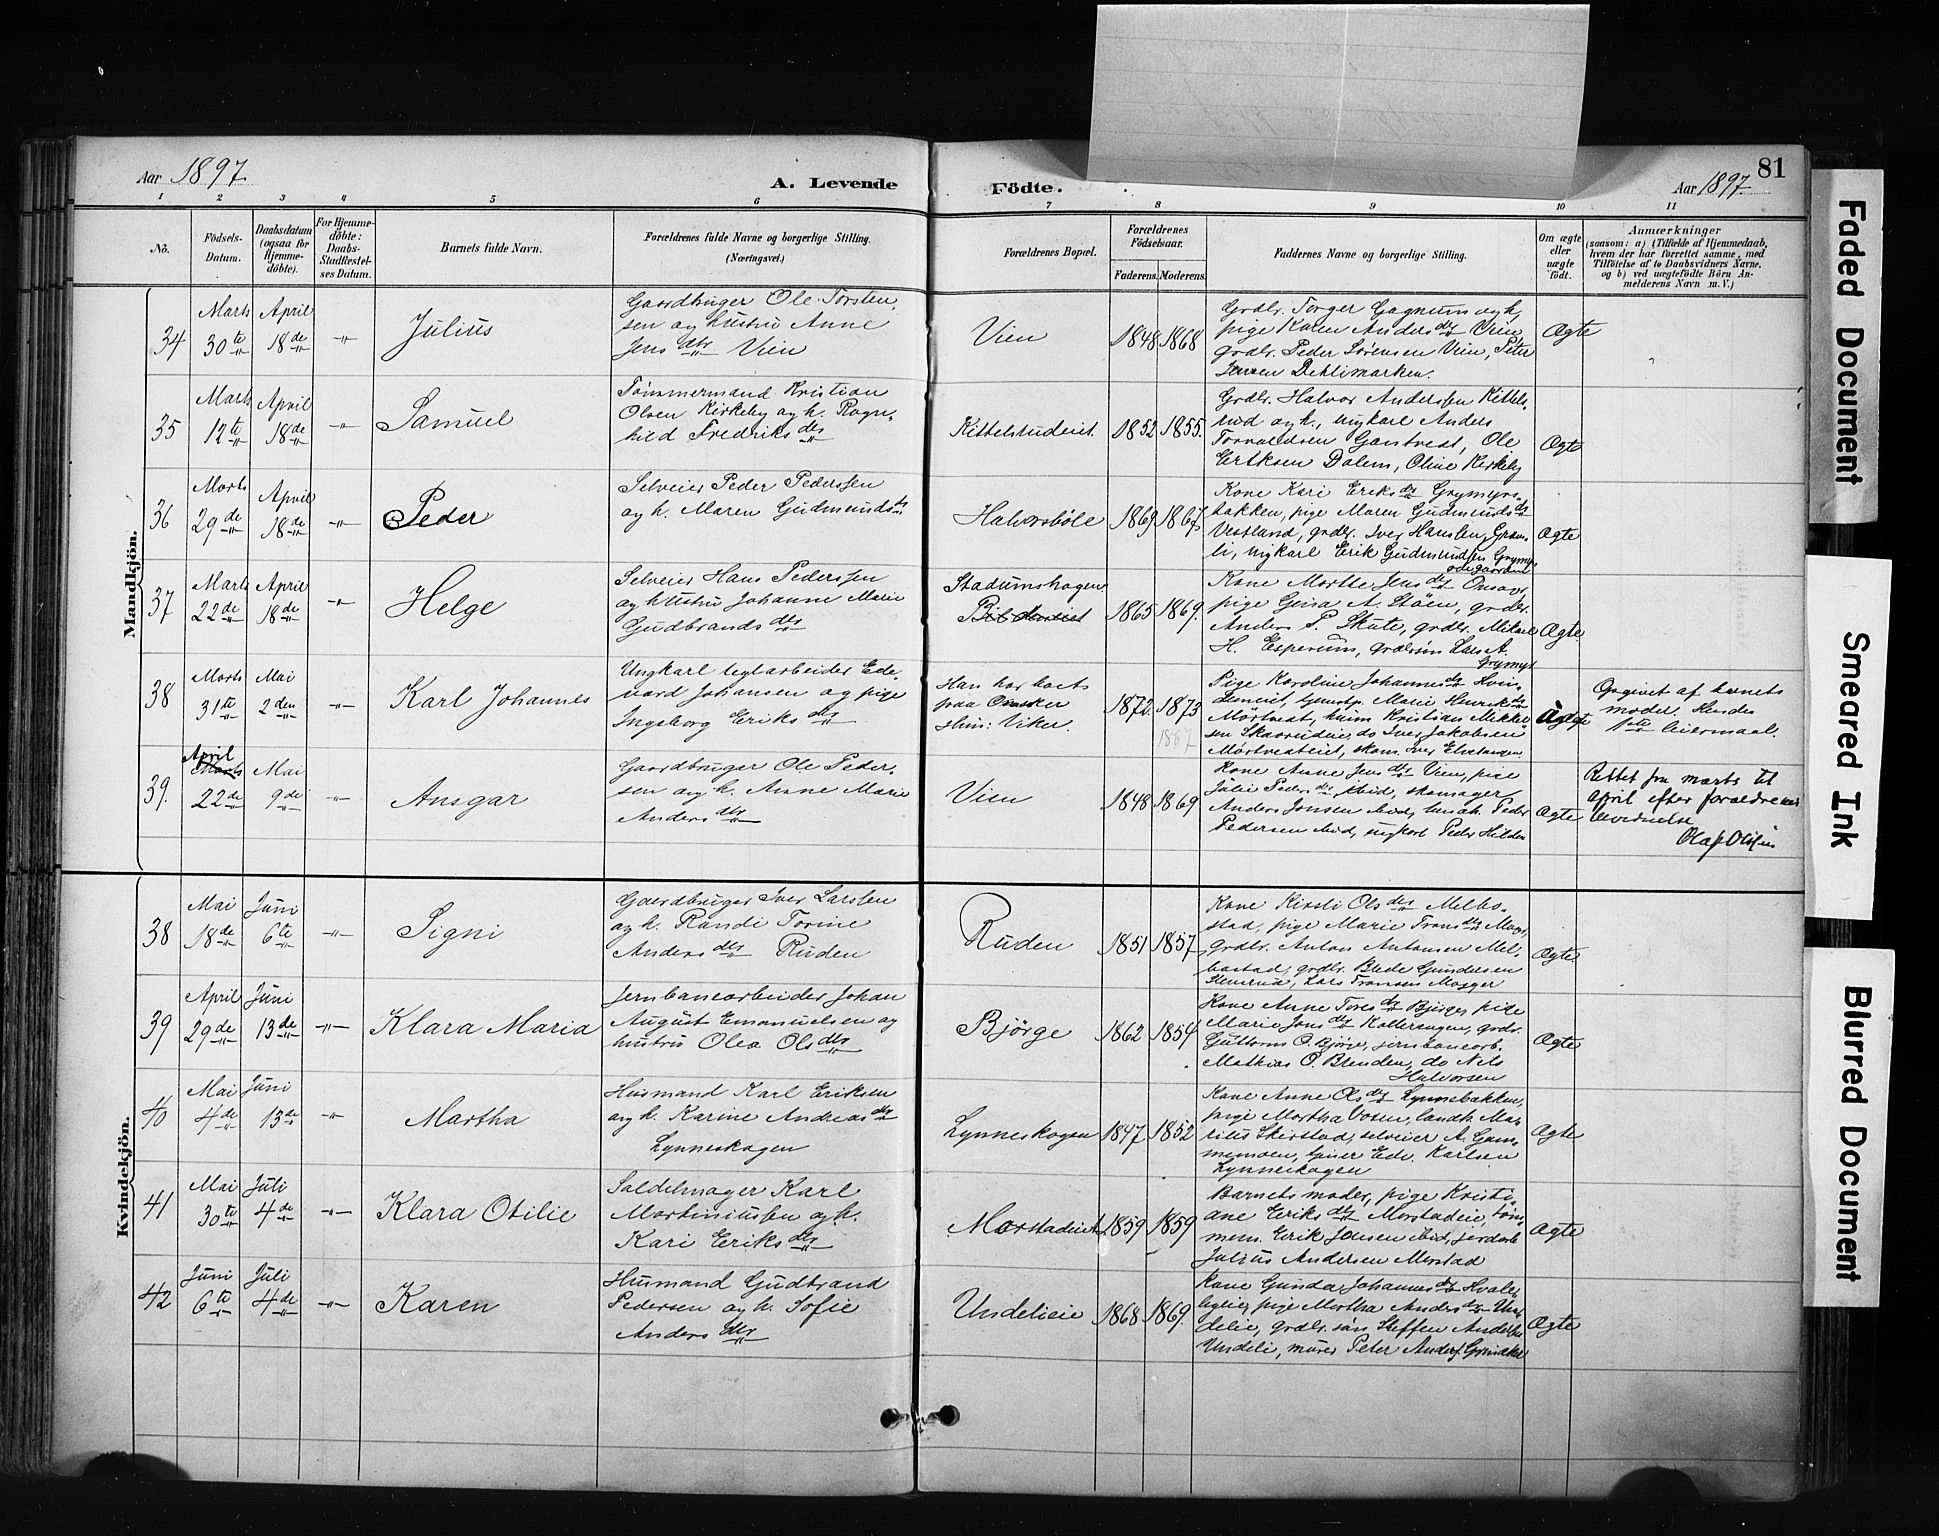 Aar 1897.
A. Levende
Födte.
Aar 1897.
81
1 2 3 4 5 6 7 8 9 10 11
No.
Födsels-Datum.
Daabsdatum (ogsaa for Hjemme-döbte).
For Hjemme-döbte: Daabs-Stadfæstel-ses Datum.
Barnets fulde Navn.
Forældrenes fulde Navne og borgerlige Stilling. (Næringsvei.)
Forældrenes Bopæl.
Forældrenes Födselsaar.
Faderens. Moderens.
Faddernes Navne og borgerlige Stilling.
Om ægte eller uægte födt.
Anmærkninger
(saasom: a) (Tilfælde af Hjemmedaab,
hvem der har forrettet samme, med
Tilföielse af to Daabsvidners Navne,
og b) ved uægtefödte Börn An-
melderens Navn m. V.)
Mandkjön.
34
Marts 30te
April 18de
Julius
Gaardbruger Ole Torsten
sen og hustru Anne
Jens dtr Vien
Vien
1848 1868
Grdbr. Torger Gagnum og h,
pige Karen Anders dtr Vien,
grdbr. Peder Sørensen Vien, Peter
Jensen Dehlimarken.
Ægte
35
Marts 12te
April 18de
Samuel
Tømmermand Kristian
Olsen Kirkeby og h. Ragn-
hild Fredriks dtr
Kittelsrudeiet.
1852 1855.
Grdbr. Halvor Anderssen Kittels-
rud og h., ungkarl Anders
Torvaldsen Gamtvedt, Ole
Eriksen Dalen, Oline Kirkeby
Ægte
36
Marts 29de
April 18de
Peder
Selveier Peder Pederssen
og h. Maren Gudmundsdtr
Halvorsböle
1869 1867
Kone Kari Eriks dtr Grymyrs-
bakken, pige Maren Gudmunds dtr
Vestland, grdbr. Iver Hanssen Gram-
li, ungkarl Erik Gudmundsen Grymyr
Ægte
37
Marts 22de
April 18de
Helge
Selveier Hans Pederssen
og hustru Johanne Marie
Gudbrands dtr
Stadumshagen
1865 1869.
Kone Marthe Jens dtr
pige Gina A. Støen, grdbr.
Anders P. Skute, grdbr. Mikael
H. Esperum, grdbrsøn Lars A.
Grymyr
Ægte
38
Marts 31te
Mai 2den
Karl Johannes
Ungkarl teglarbeider Ede-
vard Johansen og pige
Ingeborg Eriks dtr
Han har boets
paa
Hun: Viker.
1872. 1873
1867
Pige Karoline Johannes dtr
Marie Henriks dtr
Mørtvedt, Kristian Mikkel
sen Skaarudeie, do Iver Jakobsen
Mørtvedteiet, skom. Iver Elvetangen
Uægte
Opgivet af barnets
moder. Hendes
1ste leiermaal.
39.
April Marts 22de
Mai 9de
Ansgar
Gaardbruger Ole Peder-
sen og h. Anne Marie
Anders dtr
Vien
1848 1869
Kone Anne Jens dtr Vien, pige
Julie Peders dtr ibid, skomager
Anders Jonsen ibid, Peder
Pedersen ibid, ungkarl Peder Hilden
Ægte
Rettet fra marts til
april efter forældrenes
bevidnelse
Olaf Olssen
Kvindekjön.
38
Mai 18de
Juni 6te
Signi
Gaardbruger Iver Larssen
og h. Randi Torine
Anders dtr Ruden
Ruden
1851 1857
Kone Kirsti Ols dtr Melbo-
stad, pige Marie Frans dtr
grdbr. Anton Antonsen Mel-
bostad, grdbr. Gundersen
Lars Fransen Mogger
Ægte.
39
April 29de
Juni 13de
Klara Maria
Jernbanearbeider Johan
August Emanuelsen og
hustru Olea Ols dtr
Bjørge
1862 1854
Kone Anne Tores dtr Bjørge, pige
Marie Jens dtr Kolterengen, grdbr.
Guttorm O. Bjørge, jernbanearb.
Mathias O. Blinden, do Nels
Halvorsen
Ægte
40
Mai 4de
Juni 13de
Martha
Husmand Karl Eriksen
og h. Karine Andreas dtr
Lynneskogen
Lynneskogen
1847 1852
Kone Anne Ols dtr Lynnebakken,
pige Martha Vosen, landh. Ma-
rius Skirstad, selveier A. Gam-
memoen, tjener Edv. Karlsen
Lynneskogen
Ægte
41
Mai 30te
Juli 4de
Klara Otilie
Saldelmager Karl
Martiniussen og h.
Kari Eriks dtr
Morstadeiet
1859 1859
Barnets moder, pige Kristi-
ane Eriks dtr Morstadeie, töm-
merm. Erik Jonsen ibid, jordarb
Julius Andersen Morstad
Ægte
42
Juni 6te
Juli 4de
Karen
Husmand Gudbrand
Pedersen og h. Sofie
Anders dtr
Undelieie
1868 1869.
Kone Gunda Johannes dtr Hvale-
byeie, pige Martha Anders dtr Un-
delie, grdbr. søn Steffen
Undeli, murer Peter Anders. Grinaker
Ægte
Faded Document
Smeared Ink
Blurred Document